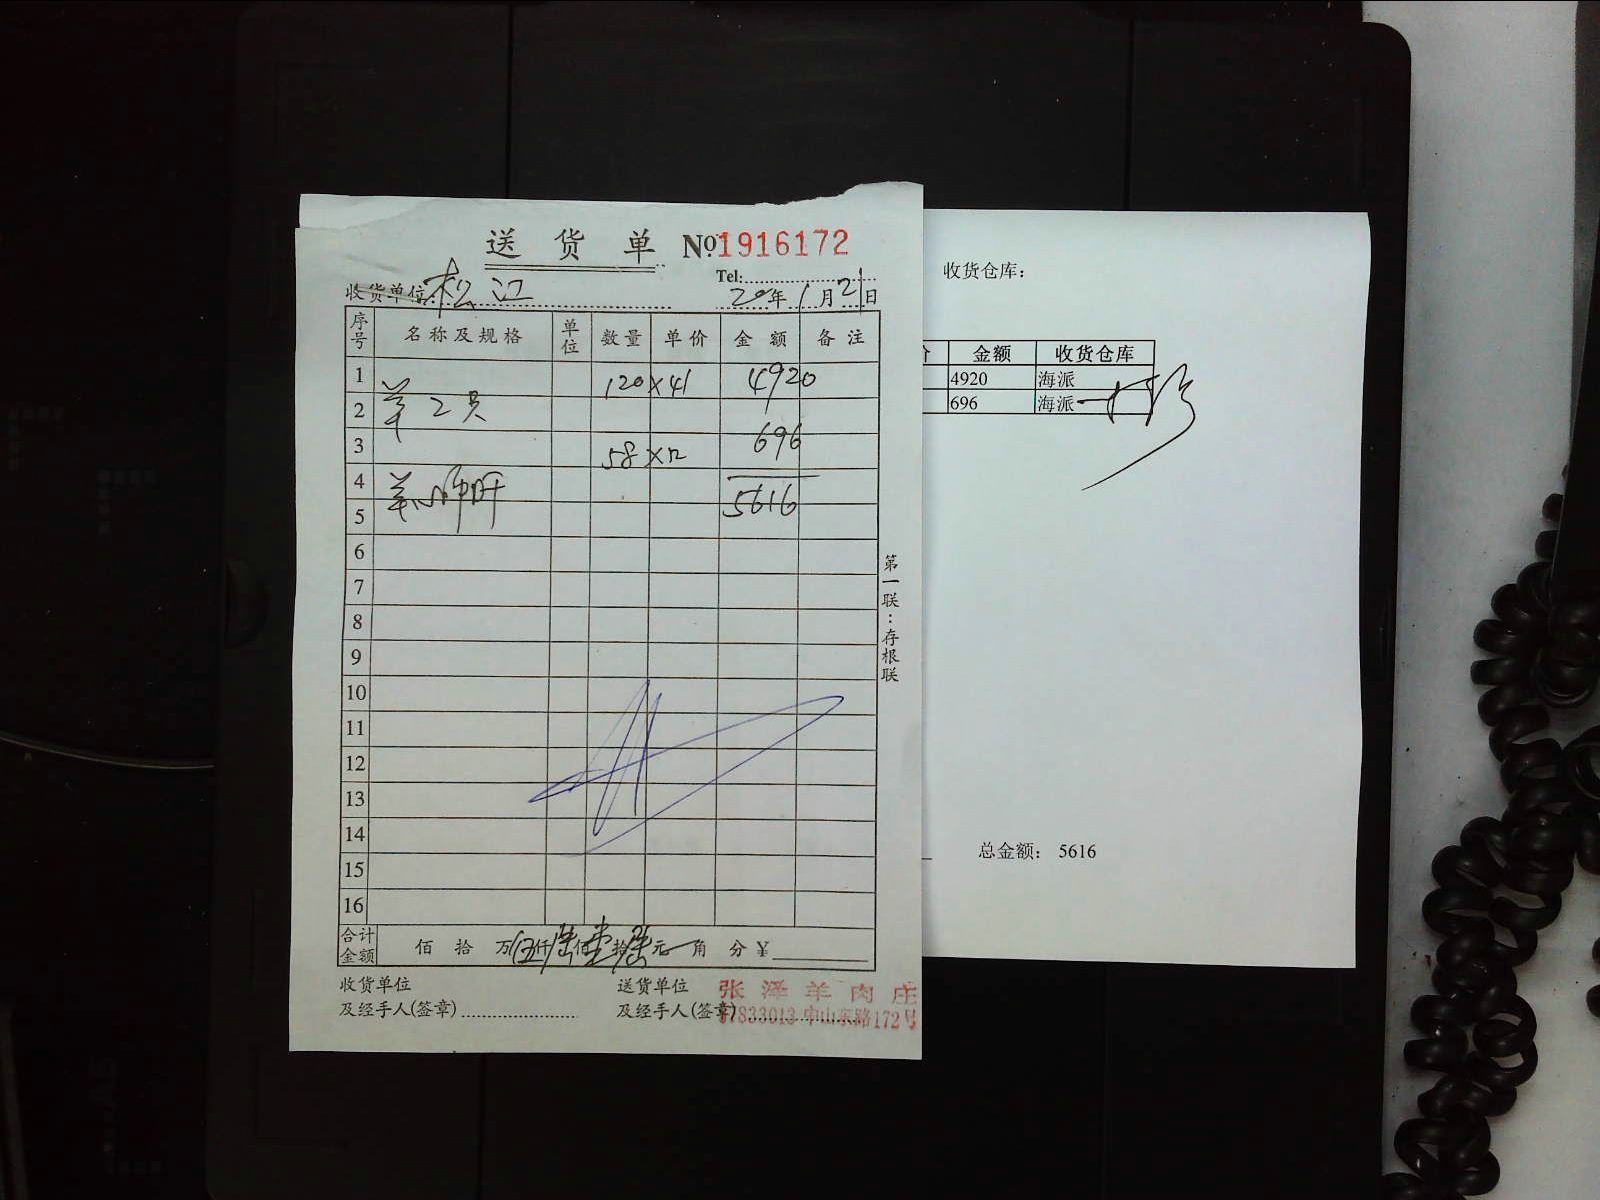 送货单 No.1916172
Tel:
收货单位 松江 20年1月21日
序号 名称及规格 单位 数量 单价 金额 备注
1 120×41 4920
2 羊2只
3 58×12 696
4 羊心肺肝
5 5616
6
7
8
9
10
11
12
13
14
15
16
合计金额 佰 拾 万伍仟陆佰壹拾陆元 角 分 ¥
收货单位 送货单位 张泽羊肉庄
及经手人(签章) 及经手人(签章) 57833013 中山东路172号
第一联:存根联
收货仓库:
金额 收货仓库
4920 海派
696 海派
总金额: 5616